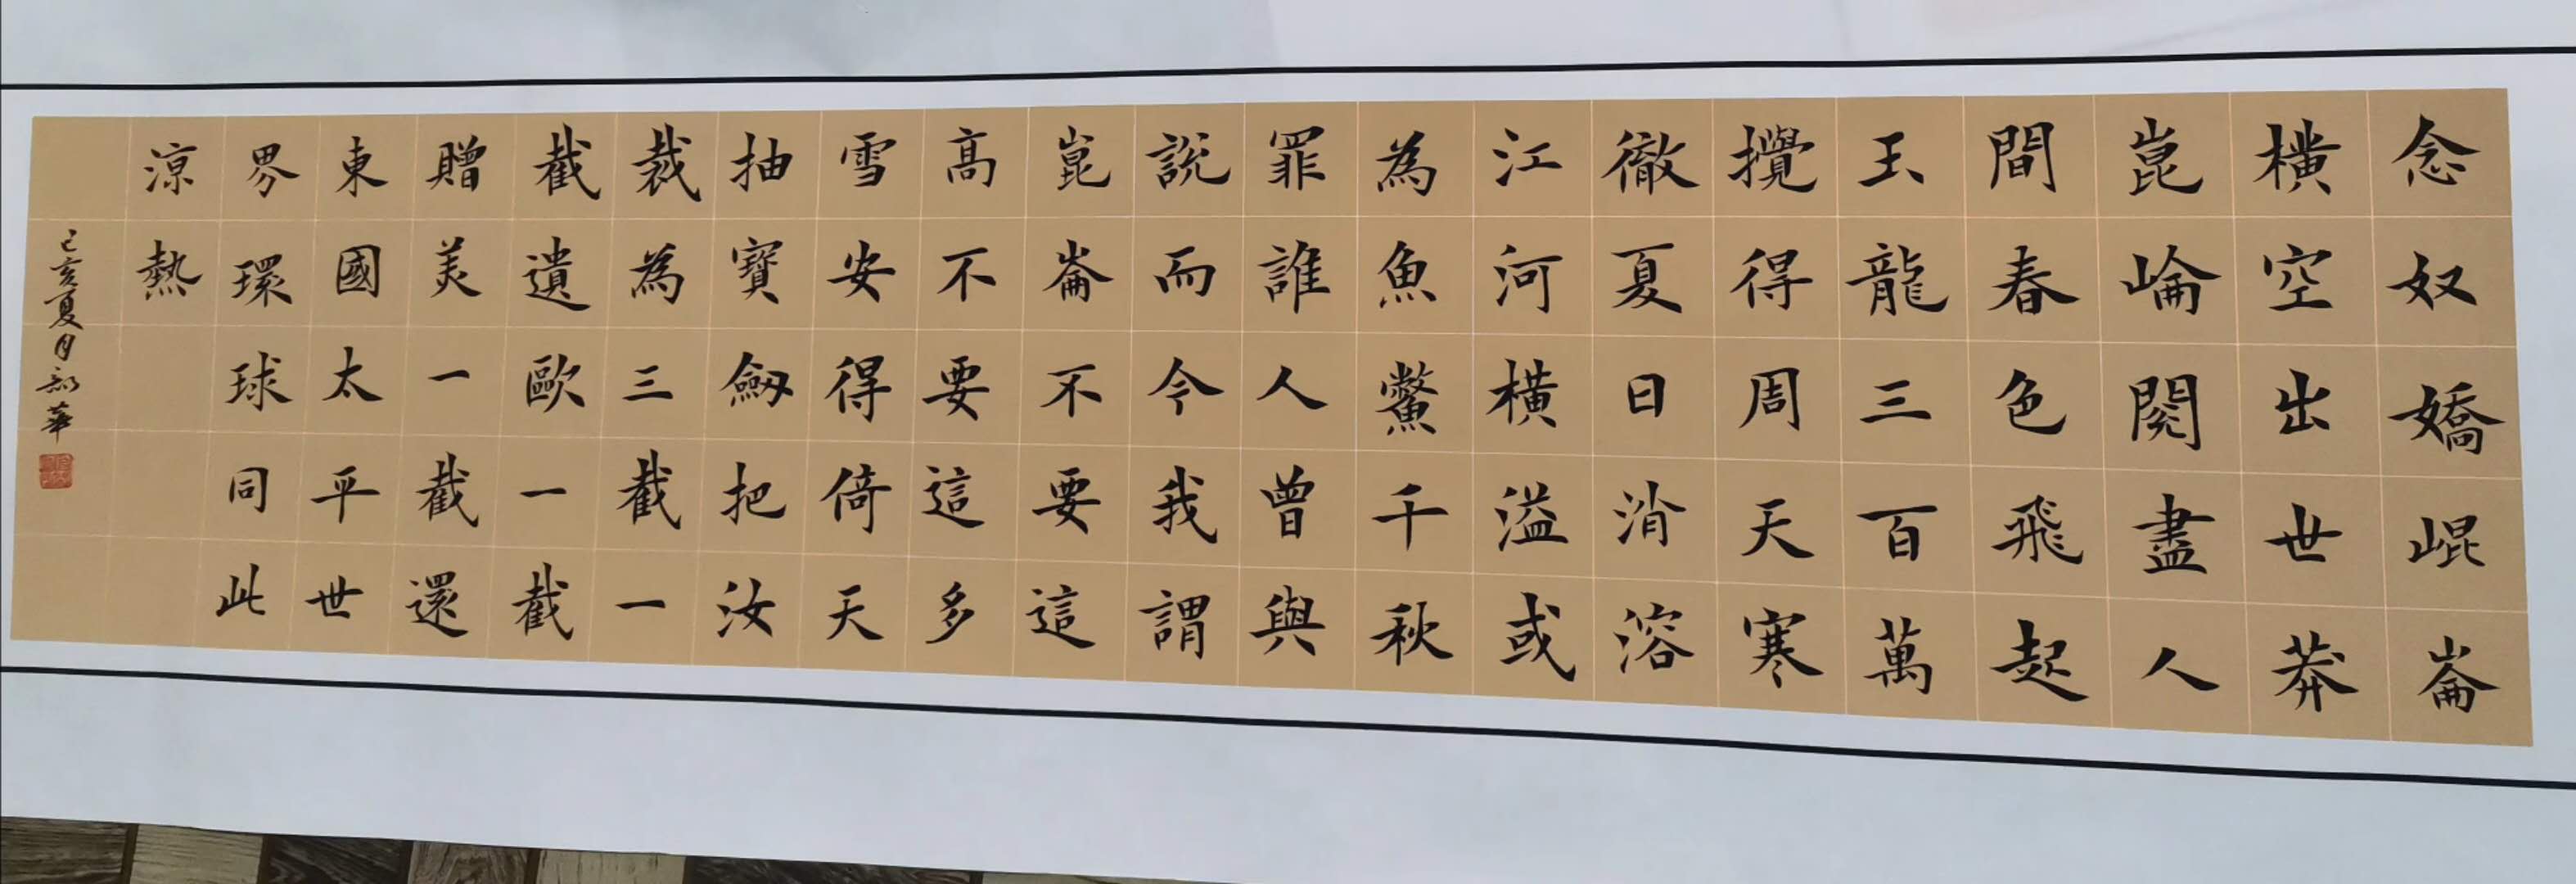 念奴嬌崐崙
橫空出世莽
崑崘閱盡人
間春色飛起
玉龍三百萬
攪得周天寒
徹夏日消溶
江河橫溢或
為魚鱉千秋
罪誰人曾與
說而今我謂
崑崙不要這
高不要這多
雪安得倚天
抽寶劒把汝
裁為三截一
截遺歐一截
贈美一截還
東國太平世
界環球同此
涼熱
己亥夏月 華